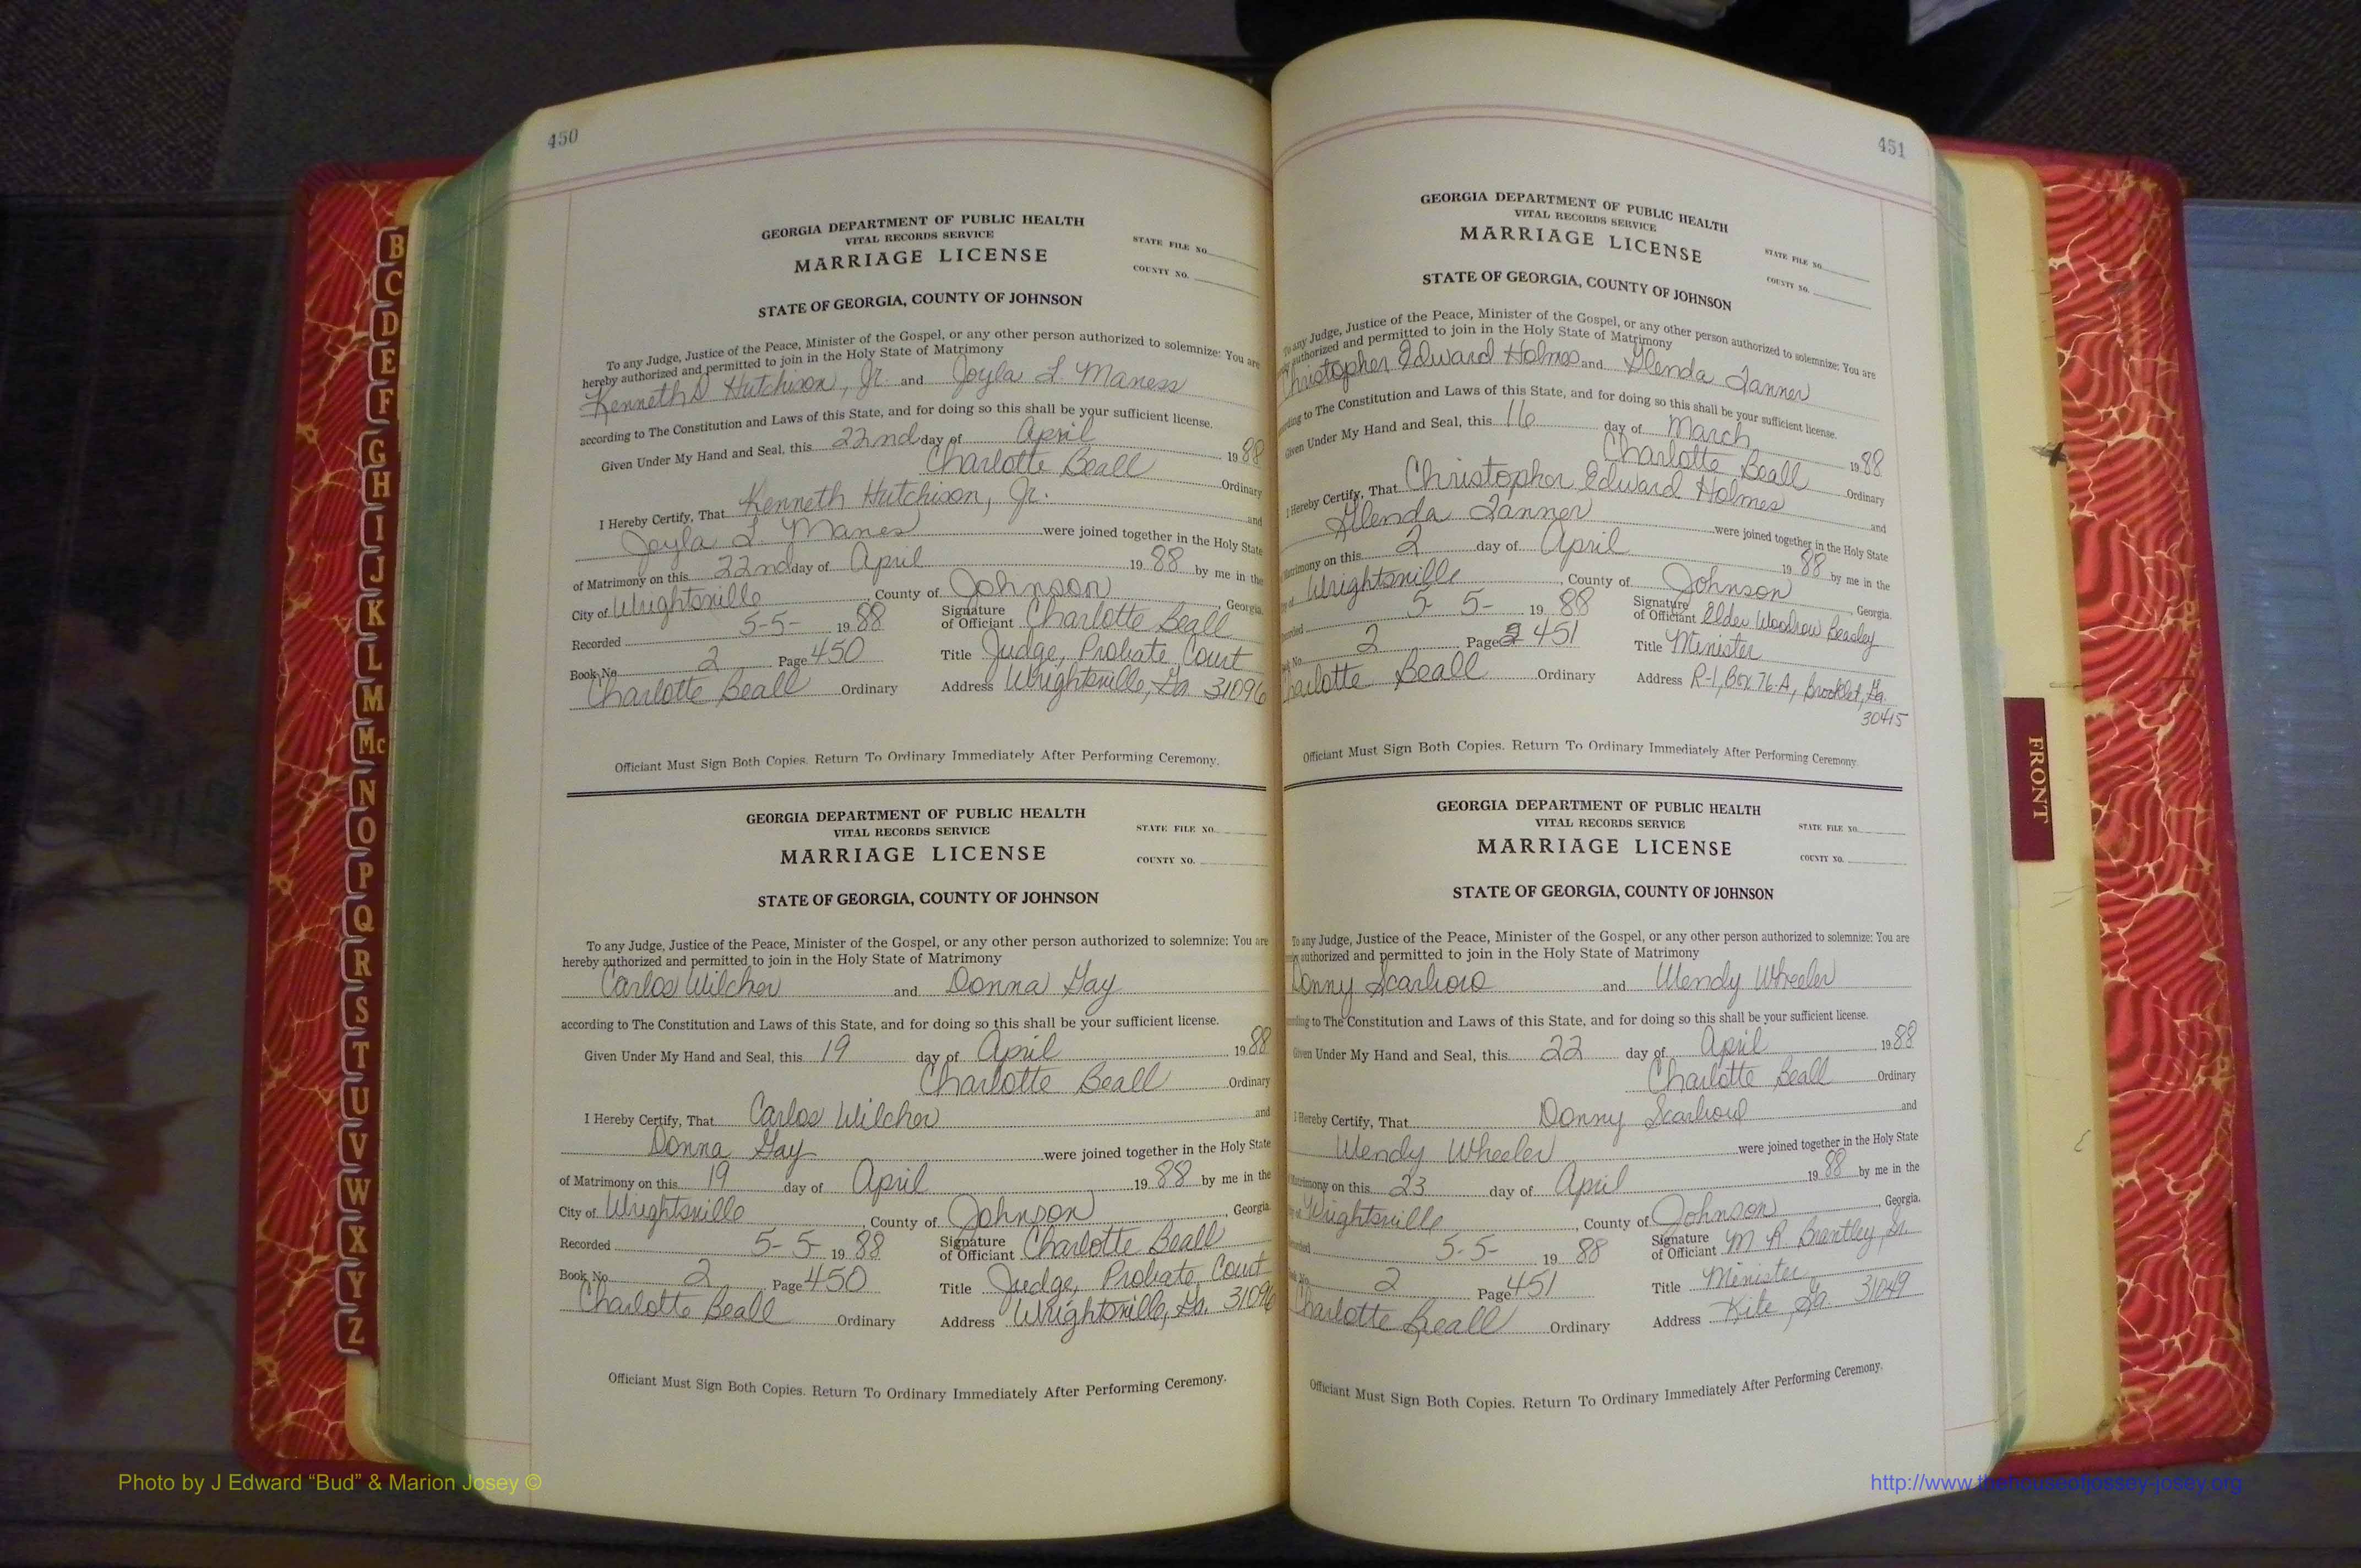 450
GEORGIA DEPARTMENT OF PUBLIC HEALTH
VITAL RECORDS SERVICE
MARRIAGE LICENSE
STATE FILE NO.
COUNTY NO.
STATE OF GEORGIA, COUNTY OF JOHNSON
To any Judge, Justice of the Peace, Minister of the Gospel, or any other person authorized to solemnize: You are
hereby authorized and permitted to join in the Holy State of Matrimony
Kenneth D Hutchison, Jr. and Joyla L. Maness
according to The Constitution and Laws of this State, and for doing so this shall be your sufficient license.
Given Under My Hand and Seal, this 22nd day of April 1988
Charlotte Beall Ordinary
I Hereby Certify, That Kenneth Hutchison, Jr. and
Joyla L. Manes were joined together in the Holy State
of Matrimony on this 22nd day of April 1988 by me in the
City of Wrightsville, County of Johnson, Georgia.
Recorded 5-5- 1988 Signature of Officiant Charlotte Beall
Book No. 2 Page 450 Title Judge, Probate Court
Charlotte Beall Ordinary Address Wrightsville, Ga. 31096
Officiant Must Sign Both Copies. Return To Ordinary Immediately After Performing Ceremony.
GEORGIA DEPARTMENT OF PUBLIC HEALTH
VITAL RECORDS SERVICE
MARRIAGE LICENSE
STATE FILE NO.
COUNTY NO.
STATE OF GEORGIA, COUNTY OF JOHNSON
To any Judge, Justice of the Peace, Minister of the Gospel, or any other person authorized to solemnize: You are
hereby authorized and permitted to join in the Holy State of Matrimony
Carlos Wilcher and Donna Gay
according to The Constitution and Laws of this State, and for doing so this shall be your sufficient license.
Given Under My Hand and Seal, this 19 day of April 1988
Charlotte Beall Ordinary
I Hereby Certify, That Carlos Wilcher and
Donna Gay were joined together in the Holy State
of Matrimony on this 19 day of April 1988 by me in the
City of Wrightsville, County of Johnson, Georgia.
Recorded 5-5- 1988 Signature of Officiant Charlotte Beall
Book No. 2 Page 450 Title Judge, Probate Court
Charlotte Beall Ordinary Address Wrightsville, Ga. 31096
Officiant Must Sign Both Copies. Return To Ordinary Immediately After Performing Ceremony.
451
GEORGIA DEPARTMENT OF PUBLIC HEALTH
VITAL RECORDS SERVICE
MARRIAGE LICENSE
STATE FILE NO.
COUNTY NO.
STATE OF GEORGIA, COUNTY OF JOHNSON
To any Judge, Justice of the Peace, Minister of the Gospel, or any other person authorized to solemnize: You are
authorized and permitted to join in the Holy State of Matrimony
Christopher Edward Holmes and Glenda Tanner
to The Constitution and Laws of this State, and for doing so this shall be your sufficient license.
Given Under My Hand and Seal, this 16 day of March 1988
Charlotte Beall Ordinary
I Hereby Certify, That Christopher Edward Holmes and
Glenda Tanner were joined together in the Holy State
Matrimony on this 2 day of April 1988 by me in the
Wrightsville, County of Johnson, Georgia.
5 5- 1988 Signature of Officiant Elder Woodrow Beasley
No. 2 Page 451 Title Minister
Charlotte Beall Ordinary Address R-1, Box 76-A, Brooklet, Ga.
30415
Officiant Must Sign Both Copies. Return To Ordinary Immediately After Performing Ceremony.
GEORGIA DEPARTMENT OF PUBLIC HEALTH
VITAL RECORDS SERVICE
MARRIAGE LICENSE
STATE FILE NO.
COUNTY NO.
STATE OF GEORGIA, COUNTY OF JOHNSON
To any Judge, Justice of the Peace, Minister of the Gospel, or any other person authorized to solemnize: You are
authorized and permitted to join in the Holy State of Matrimony
Donny Scarboro and Wendy Wheeler
to The Constitution and Laws of this State, and for doing so this shall be your sufficient license.
Given Under My Hand and Seal, this 22 day of April 1988
Charlotte Beall Ordinary
I Hereby Certify, That Donny Scarboro and
Wendy Wheeler were joined together in the Holy State
Matrimony on this 23 day of April 1988 by me in the
Wrightsville, County of Johnson, Georgia.
5-5- 1988 Signature of Officiant M R Brantley
No. 2 Page 451 Title Minister
Charlotte Beall Ordinary Address Kite, Ga. 31049
Officiant Must Sign Both Copies. Return To Ordinary Immediately After Performing Ceremony.
B
C
D
E
F
G
H
I
J
K
L
M
Mc
N
O
P
Q
R
S
T
U
V
W
X
Y
Z
FRONT
Photo by J Edward “Bud” & Marion Josey ©
http://www.thehouseofjossey-josey.org